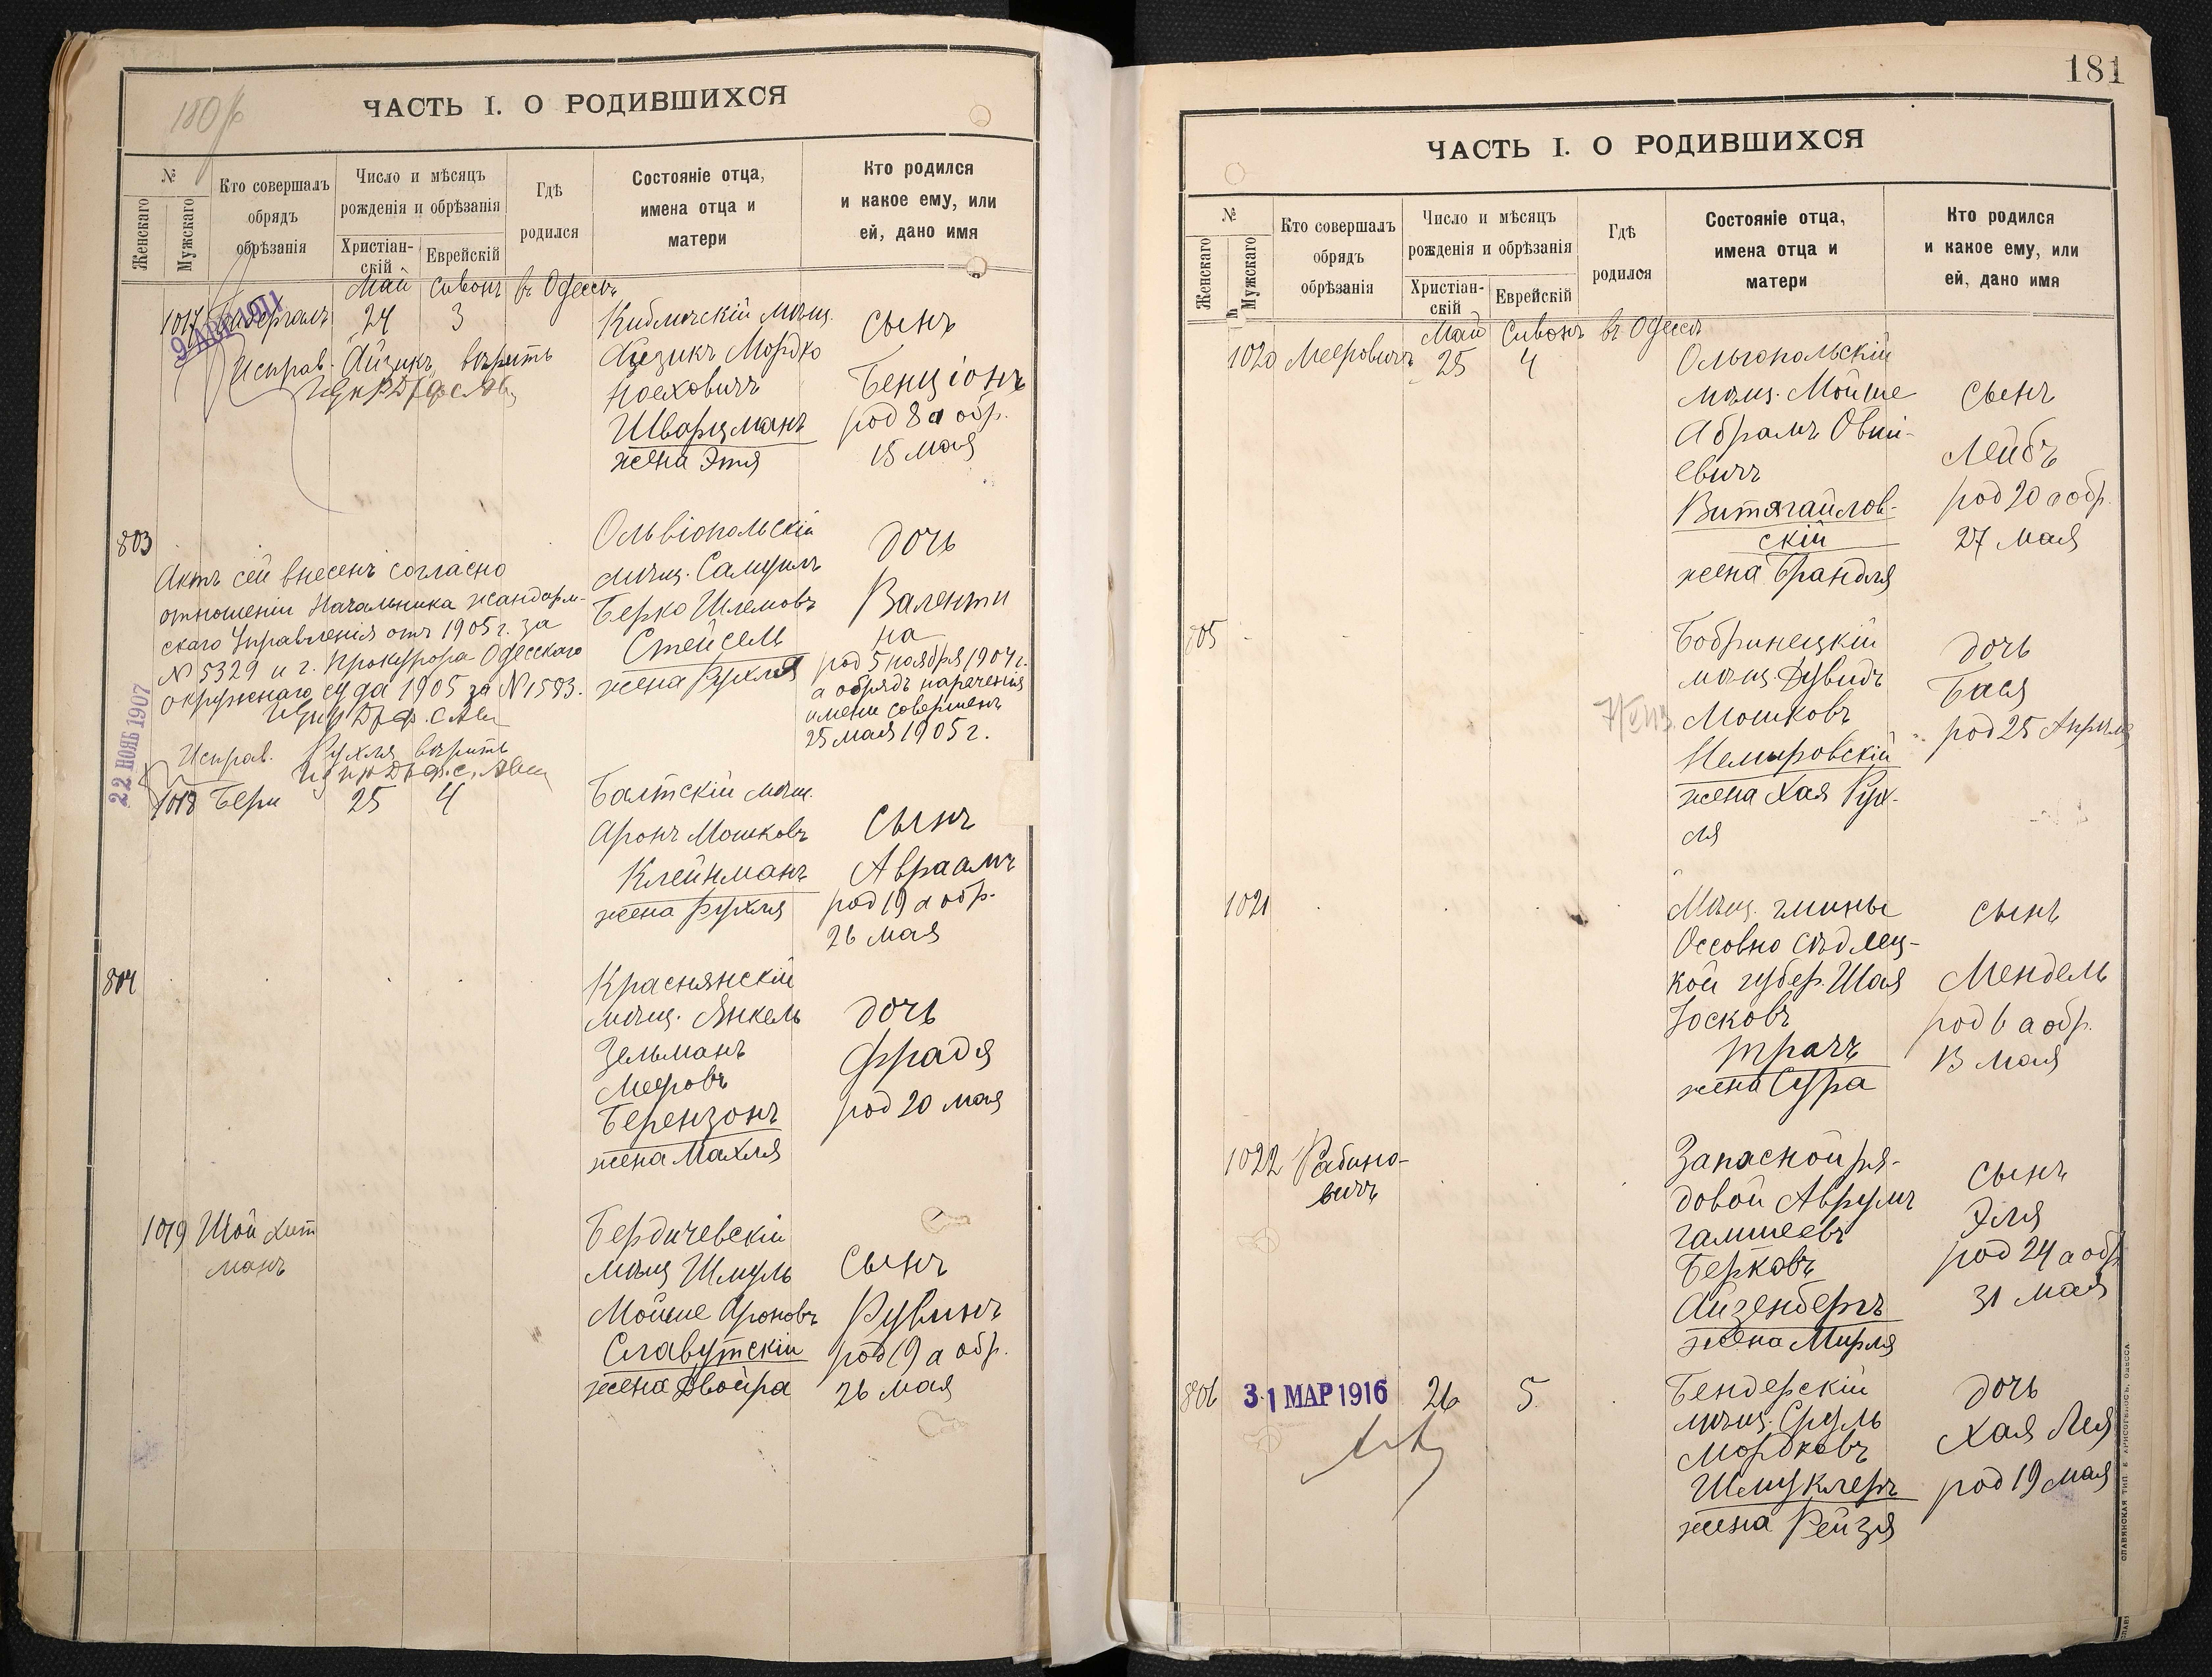 180
ЧАСТЬ I. О РОДИВШИХСЯ
№
Женскаго
Мужскаго
Кто совершалъ
обрядъ
обрѣзанія
Число и мѣсяцъ
рожденія и обрѣзанія
Христіан-
скій
Еврейскій
Гдѣ
родился
Состояніе отца,
имена отца и
матери
Кто родился
и какое ему, или
ей, дано имя
Май Сивонъ въ Одессѣ
1017
24 3
Исправ. Айзикъ вѣрить
Кибличскій мѣщ.
Айзикъ Мордко
Ноеховичъ
Шварцманъ
жена Этя
сынъ
Бенціонъ
род 8 а обр.
15 мая
803
Актъ сей внесенъ согласно
отношеніи Начальника жандарм-
скаго Управленія отъ 1905 г. за
№ 5329 и г. Прокурора Одесскаго
окружнаго суда 1905 за № 1593.
22 НОЯБ 1907
Исправ. Рухля вѣрить
Ольвіопольскій
мѣщ. Самуилъ
Берко Шлемовъ
Стейсель
жена Рухля
дочь
Валенти
на
род 5 ноября 1904 г.
а обрядъ нареченія
имени совершенъ
25 мая 1905 г.
1018 Бери 25 4
Балтскій мѣщ.
Аронъ Мошковъ
Клейнманъ
жена Рухля
сынъ
Авраамъ
род 19 а обр.
26 мая
804
Краснянскій
мѣщ. Янкель
Зельманъ
Мееровъ
Берензонъ
жена Махля
дочь
Фрадя
род 20 мая
1019 Шойхет
манъ
Бердичевскій
мѣщ Шмуль
Мойше Ароновъ
Славутскій
жена Двойра
сынъ
Рувинъ
род 19 а обр.
26 мая
181
ЧАСТЬ I. О РОДИВШИХСЯ
№
Женскаго
Мужскаго
Кто совершалъ
обрядъ
обрѣзанія
Число и мѣсяцъ
рожденія и обрѣзанія
Христіан-
скій
Еврейскій
Гдѣ
родился
Состояніе отца,
имена отца и
матери
Кто родился
и какое ему, или
ей, дано имя
Май Сивонъ въ Одессѣ
1020 Мееровичъ 25 4
Ольгопольскій
мѣщ. Мойше
Абрамъ Овши-
евичъ
Витягайлов-
скій
жена Брандля
сынъ
Лейбъ
род 20 а обр.
27 мая
805
Бобринецкій
мѣщ. Дувидъ
Мошковъ
Немировскій
жена Хая Рух-
ля
дочь
Бася
род 25 Апрѣля
1021
Мѣщ. гмины
Оссовно Сѣдлец-
кой губер. Шая
Іосковъ
Трачъ
жена Сура
сынъ
Мендель
род 6 а обр.
13 мая
1022 Рабино-
вичъ
Запасной ря-
довой Аврумъ
Гамшеевъ
Берковъ
Айзенбергъ
жена Мирля
сынъ
Эля
род 24 а обр
31 мая
806 31 МАР 1916 26 5
Бендерскій
мѣщ. Сруль
Мордковъ
Шмуклеръ
жена Рейзя
дочь
Хая Лея
род 19 мая